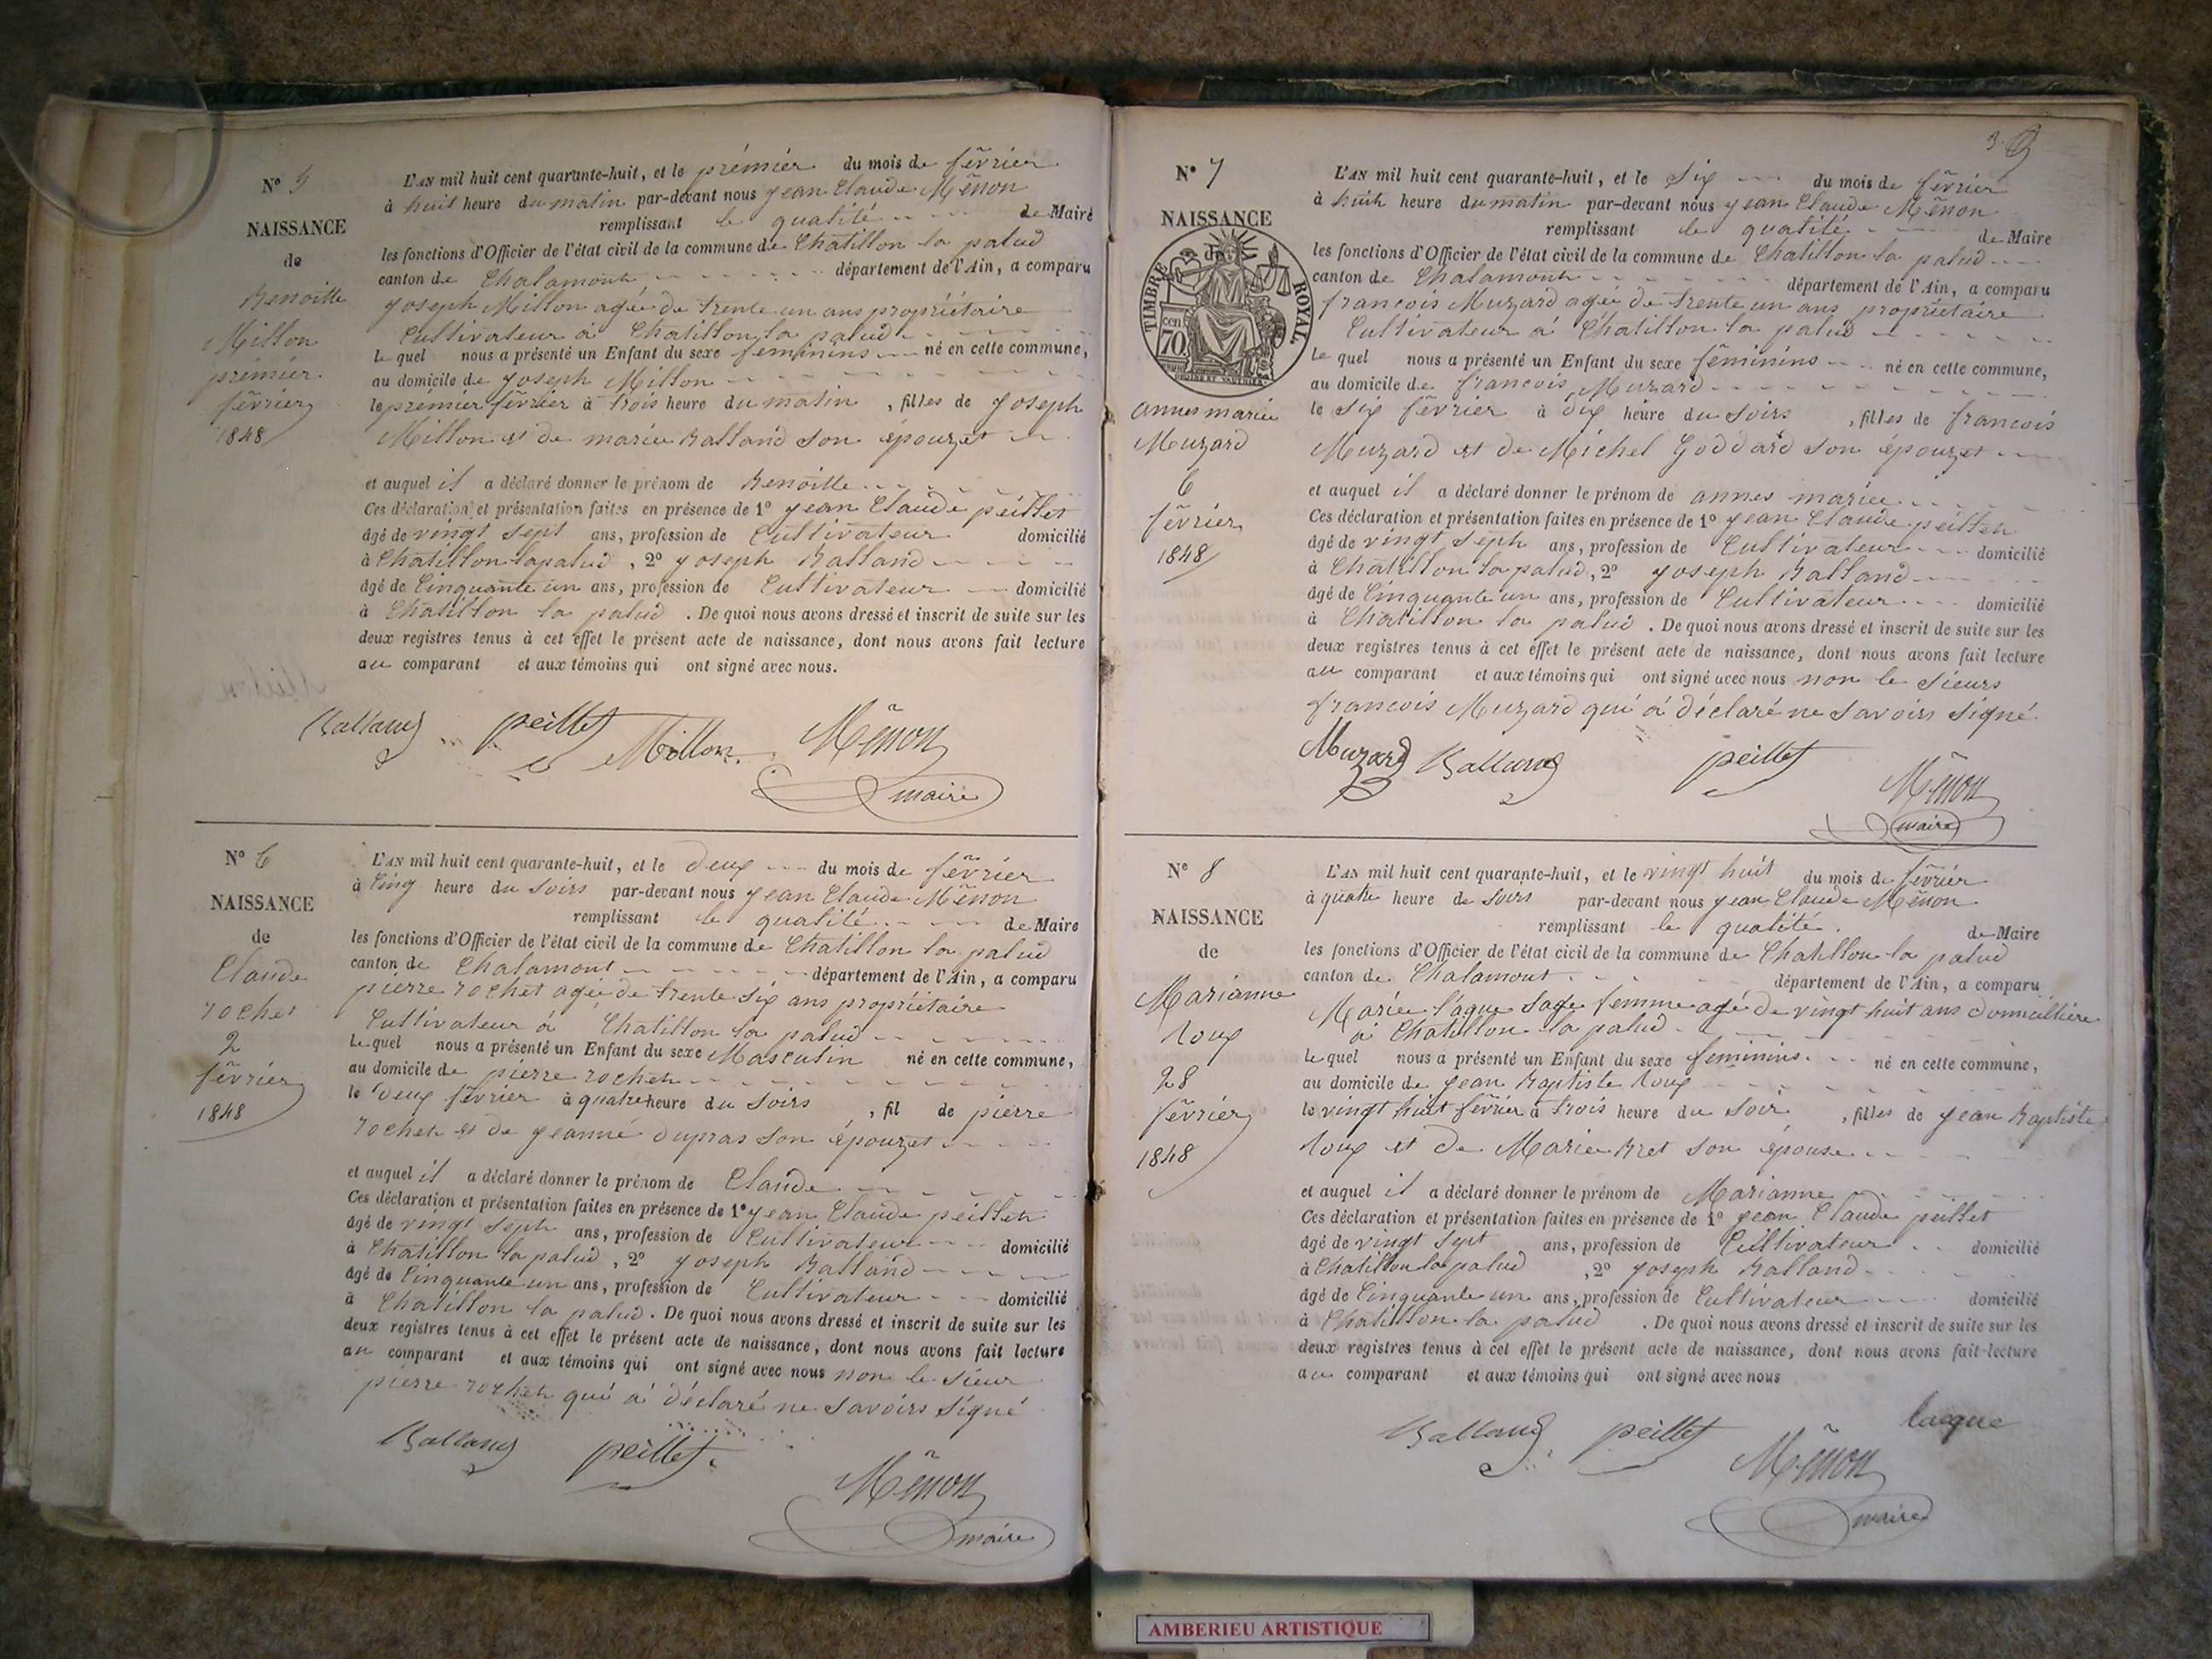 N° 5
NAISSANCE
de
Benoitte
Millon
prémiér
février
1848
L'AN mil huit cent quarante-huit, et le prémiér du mois de février
à huit heure du matin par-devant nous jean Claude Mênon
remplissant le qualité de Maire
les fonctions d'Officier de l'état civil de la commune de Chatillon la palud
canton de Chalamont département de l'Ain, a comparu
joseph Millon agée de trente un ans propriétaire
Cultivateur à Chatillon la palud
Le quel nous a présenté un Enfant du sexe feminins né en cette commune,
au domicile de joseph Millon
le prémiér février à trois heure du matin, filles de joseph
Millon et de mariee Balland son épouzet
et auquel il a déclaré donner le prénom de Benoitte
Ces déclaration et présentation faites en présence de 1° jean Claude peillet
âgé de vingt sept ans, profession de Cultivateur domicilié
à Chatillon lapalud, 2° joseph Balland
âgé de Cinquante un ans, profession de Cultivateur domicilié
à Chatillon la palud. De quoi nous avons dressé et inscrit de suite sur les
deux registres tenus à cet effet le présent acte de naissance, dont nous avons fait lecture
au comparant et aux témoins qui ont signé avec nous.
Balland peillet Millon Mênon
maire
N° 6
NAISSANCE
de
Claude
rochet
2
février
1848
L'AN mil huit cent quarante-huit, et le deux du mois de février
à Cinq heure du soirs par-devant nous jean Claude Mênon
remplissant le qualité de Maire
les fonctions d'Officier de l'état civil de la commune de Chatillon la palud
canton de Chalamont département de l'Ain, a comparu
pierre rochet agée de trente six ans propriétaire
Cultivateur à Chatillon la palud
Le quel nous a présenté un Enfant du sexe Masculin né en cette commune,
au domicile de pierre rochet
le deux février à quatre heure du soirs, fil de pierre
rochet et de jeanne dupras son épouzet
et auquel il a déclaré donner le prénom de Claude
Ces déclaration et présentation faites en présence de 1° jean Claude peillet
âgé de vingt seph ans, profession de Cultivateur domicilié
à Chatillon la palud, 2° joseph Balland
âgé de Cinquante un ans, profession de Cultivateur domicilié
à Chatillon la palud. De quoi nous avons dressé et inscrit de suite sur les
deux registres tenus à cet effet le présent acte de naissance, dont nous avons fait lecture
au comparant et aux témoins qui ont signé avec nous non le sieur
pierre rochet qui à déclaré ne savoirs signé
Balland peillet Mênon
maire
3
N° 7
NAISSANCE
de
TIMBRE ROYAL
70 cen
annes mariee
Muzard
6
février
1848
L'AN mil huit cent quarante-huit, et le six du mois de février
à huit heure du matin par-devant nous jean Claude Mênon
remplissant le qualité de Maire
les fonctions d'Officier de l'état civil de la commune de Chatillon la palud
canton de Chalamont département de l'Ain, a comparu
francois Muzard agée de trente un ans propriétaire
Cultivateur à Chatillon la palud
Le quel nous a présenté un Enfant du sexe féminins né en cette commune,
au domicile de francois Muzard
le six février à dix heure du soirs, filles de francois
Muzard et de Michel Goddard son épouzet
et auquel il a déclaré donner le prénom de annes mariee
Ces déclaration et présentation faites en présence de 1° jean Claude peillet
âgé de vingt seph ans, profession de Cultivateur domicilié
à Chatillon la palud, 2° joseph Balland
âgé de Cinquante un ans, profession de Cultivateur domicilié
à Chatillon la palud. De quoi nous avons dressé et inscrit de suite sur les
deux registres tenus à cet effet le présent acte de naissance, dont nous avons fait lecture
au comparant et aux témoins qui ont signé avec nous non le sieurs
francois Muzard qui à déclaré ne savoirs signé
Muzard Balland peillet Mênon
maire
N° 8
NAISSANCE
de
Marianne
roux
28
février
1848
L'AN mil huit cent quarante-huit, et le vingt huit du mois de février
à quatre heure de soirs par-devant nous jean Claude Mênon
remplissant le qualité de Maire
les fonctions d'Officier de l'état civil de la commune de Chatillon la palud
canton de Chalamont département de l'Ain, a comparu
Mariée lague sage femme agé de vingt huit ans domicillière
à Chatillon la palud
Le quel nous a présenté un Enfant du sexe feminins né en cette commune,
au domicile de jean Baptiste roux
le vingt huit février à trois heure du soir, filles de jean Baptiste
roux et de Marie Bret son épouse
et auquel il a déclaré donner le prénom de Marianne
Ces déclaration et présentation faites en présence de 1° jean Claude peillet
âgé de vingt sept ans, profession de Cultivateur domicilié
à Chatillon la palud, 2° joseph Balland
âgé de Cinquante un ans, profession de Cultivateur domicilié
à Chatillon la palud. De quoi nous avons dressé et inscrit de suite sur les
deux registres tenus à cet effet le présent acte de naissance, dont nous avons fait lecture
au comparant et aux témoins qui ont signé avec nous
Balland peillet Mênon lacque
maire
AMBERIEU ARTISTIQUE